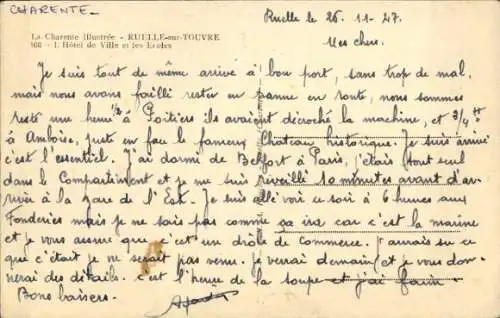 CHARENTE.
La Charente Illustrée - RUELLE-sur-TOUVRE
- L'Hôtel de Ville et les Ecoles
Ruelle le 26.11-47
Mes chers.
Je suis tout de même arrivé à bon port, sans trop de mal,
mais nous avons failli rester en panne en route, nous sommes
resté une heure 1/2 à Poitiers ils avaient décroché la machine, et 3/4 H
à Amboise, juste en face le fameux Chateau historique. Je suis arrivé
c'est l'essentiel. J'ai dormi de Belfort à Paris, j'étais tout seul
dans le Compartiment et je me suis réveillé 10 minutes avant d'ar-
river à la gare de l'Est. Je suis allé voir ce soir à 6 heures aux
Fonderies mais je ne sais pas comme ça ira car c'est la marine
et je vous assure que c'est un drôle de commerce. J'aurais su ce
que c'était je ne serait pas venu. Je verrai demain et je vous don-
nerai des détails. c'est l'heure de la soupe et j'ai faim.
Bons baisers.